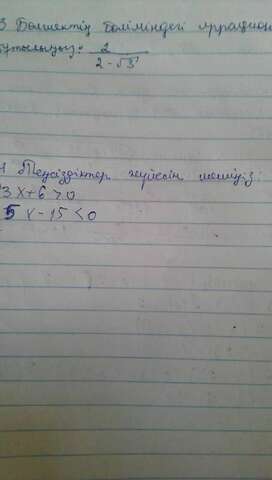 3 Бөлшектің бөліміндегі иррацион
құтылыңыз: 2
2-√3
4 Теңсіздіктер жүйесін шешіңіз:
3x+6>0
5x-15<0